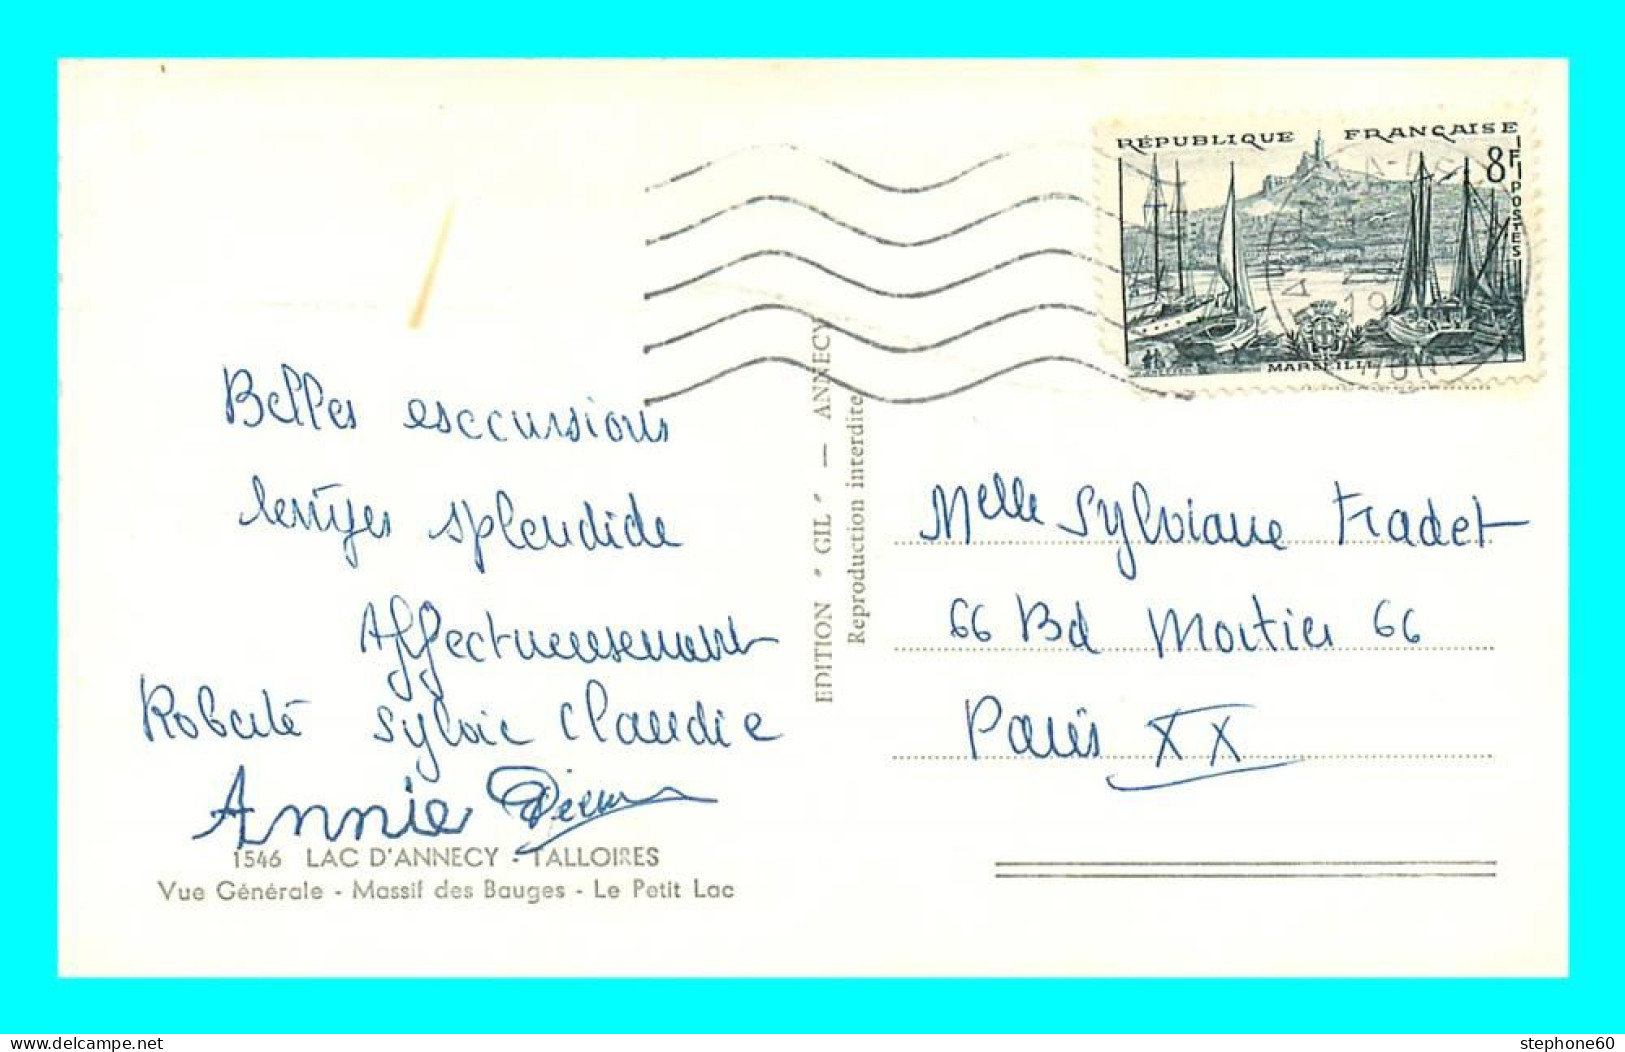 RÉPUBLIQUE FRANÇAISE
8F
POSTES
MARSEILLE
19
Belles esccursions
temps splendide
Affectueusement
Roberte Sylvie Claudie
Annie
1546 LAC D'ANNECY - TALLOIRES
Vue Générale - Massif des Bauges - Le Petit Lac
EDITION "GIL" — ANNECY
Reproduction interdite
Melle Sylviane Fradet
66 Bd Mortier 66
Paris XX
stephone60